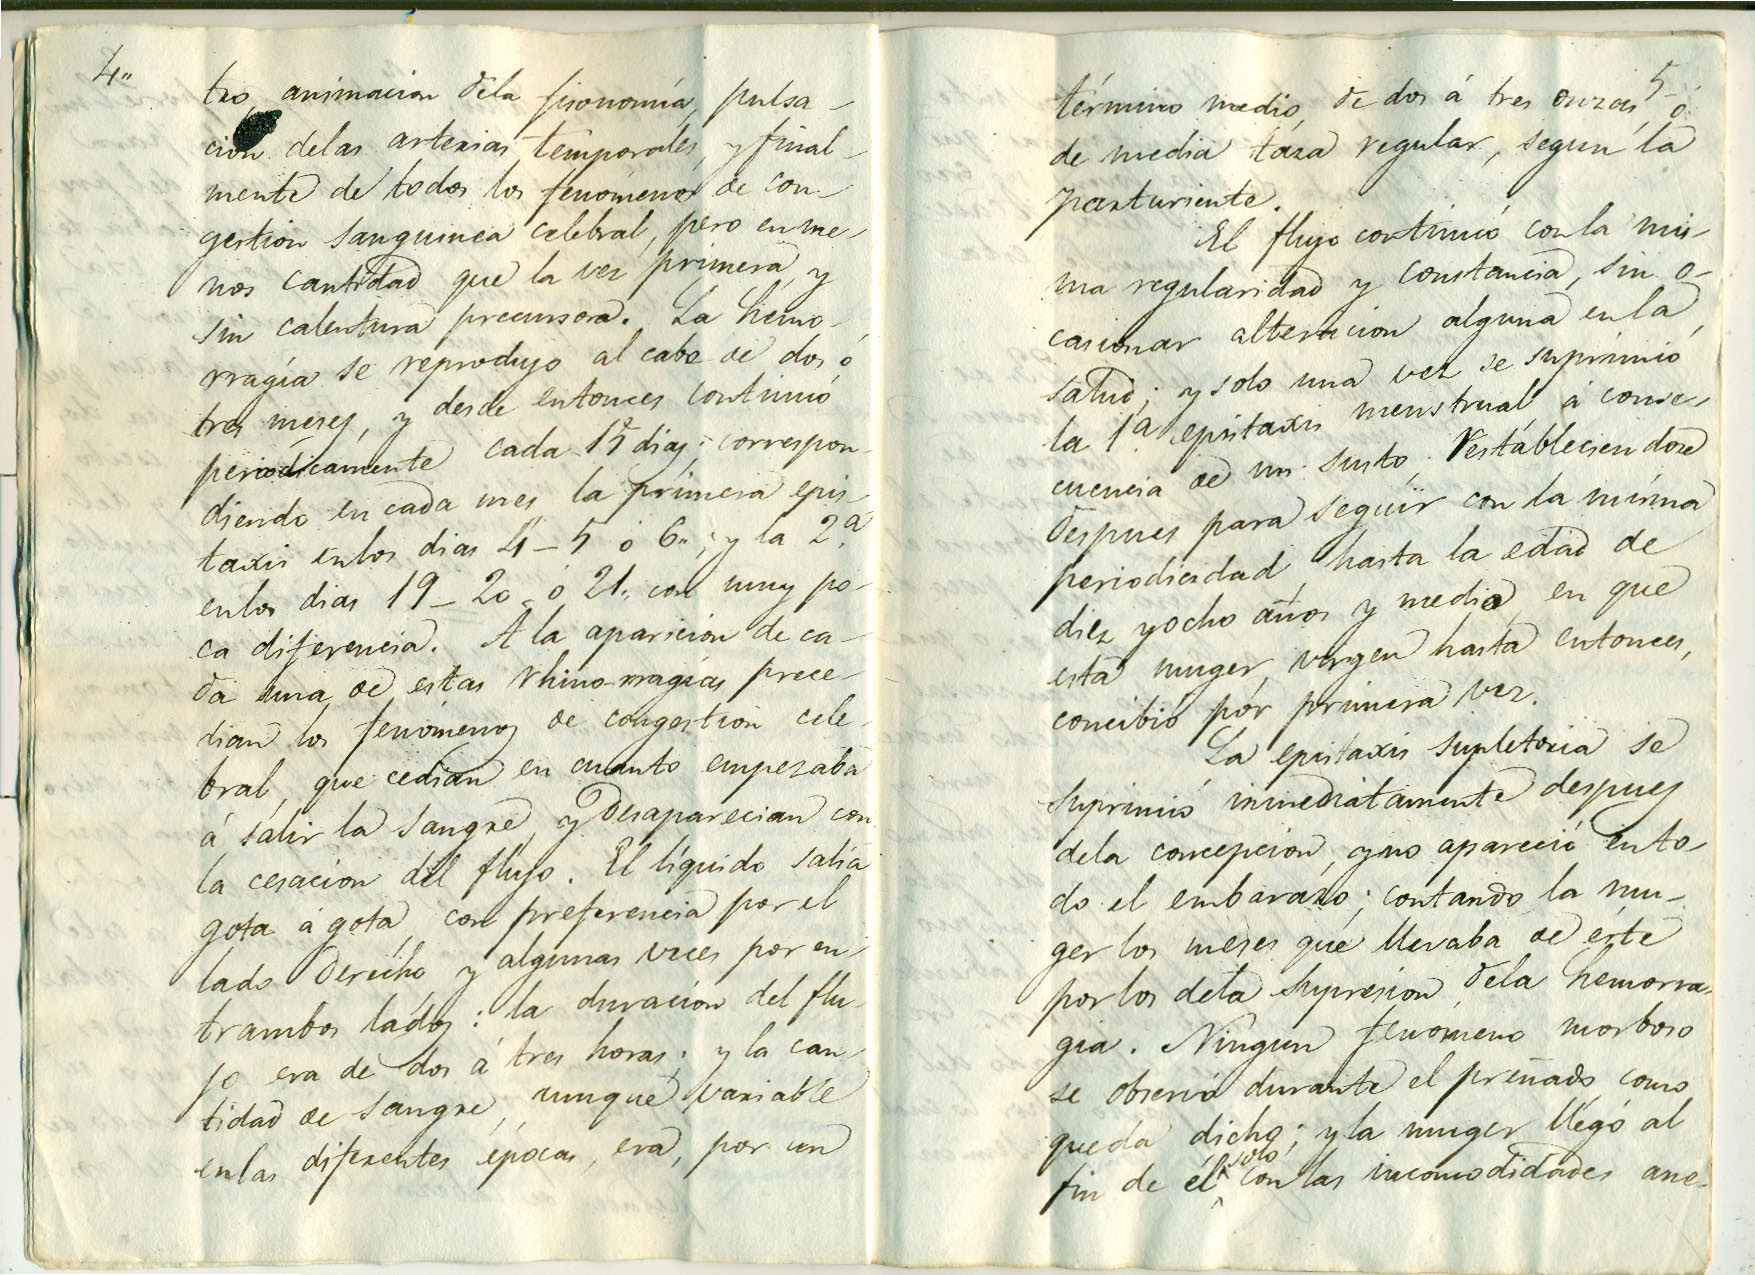 4"
tro, animacion dela fisonomía, pulsa-
cion delas arterias temporales, y final-
mente de todos los fenómenos de con-
gestion sanguinea celebral, pero en me-
nos cantidad que la vez primera y
sin calentura precursora. La hemo-
rragía se reprodujo al cabo de dos ó
tres meses, y desde entonces continuó
periodicamente cada 15 dias; correspon-
diendo en cada mes la primera epis-
taxis enlos dias 4-5 ó 6"; y la 2.ª
enlos dias 19-20 ó 21" con muy po-
ca diferencia. A la aparicion de ca-
da una de estas rhino-rragias prece-
dian los fenómenos de congestion cele-
bral, que cedian en cuanto empezaba
á salir la sangre, y desaparecian con
la cesacion del flujo. El líquido salía
gota á gota, con preferencia por el
lado derecho y algunas veces por en-
trambos lados: la duracion del flu-
jo era de dos á tres horas; y la can-
tidad de sangre, aunque variable
enlas diferentes épocas, era, por un
5
término medio, de dos á tres onzas, ó
de media taza regular, segun la
parturiente.
El flujo continuó con la mis-
ma regularidad y constancia, sin o-
casionar alteracion alguna en la
salud; y solo una vez se suprimió
la 1ª epistaxis menstrual á conse-
cuencia de un susto. Restableciendose
despues para seguir con la misma
periodicidad hasta la edad de
diez yocho años y medio, en que
esta muger, virgen hasta entonces,
concibió por primera vez.
La epistaxis supletoria se
suprimió inmediatamente despues
dela concepcion, y no apareció en to-
do el embarazo; contando la mu-
ger los meses que llevaba de éste
por los dela supresion dela hemorra-
gia. Ningun fenomeno morboso
se observó durante el preñado como
queda dicho; y la muger llegó al
fin de él solo con las incomodidades ane-